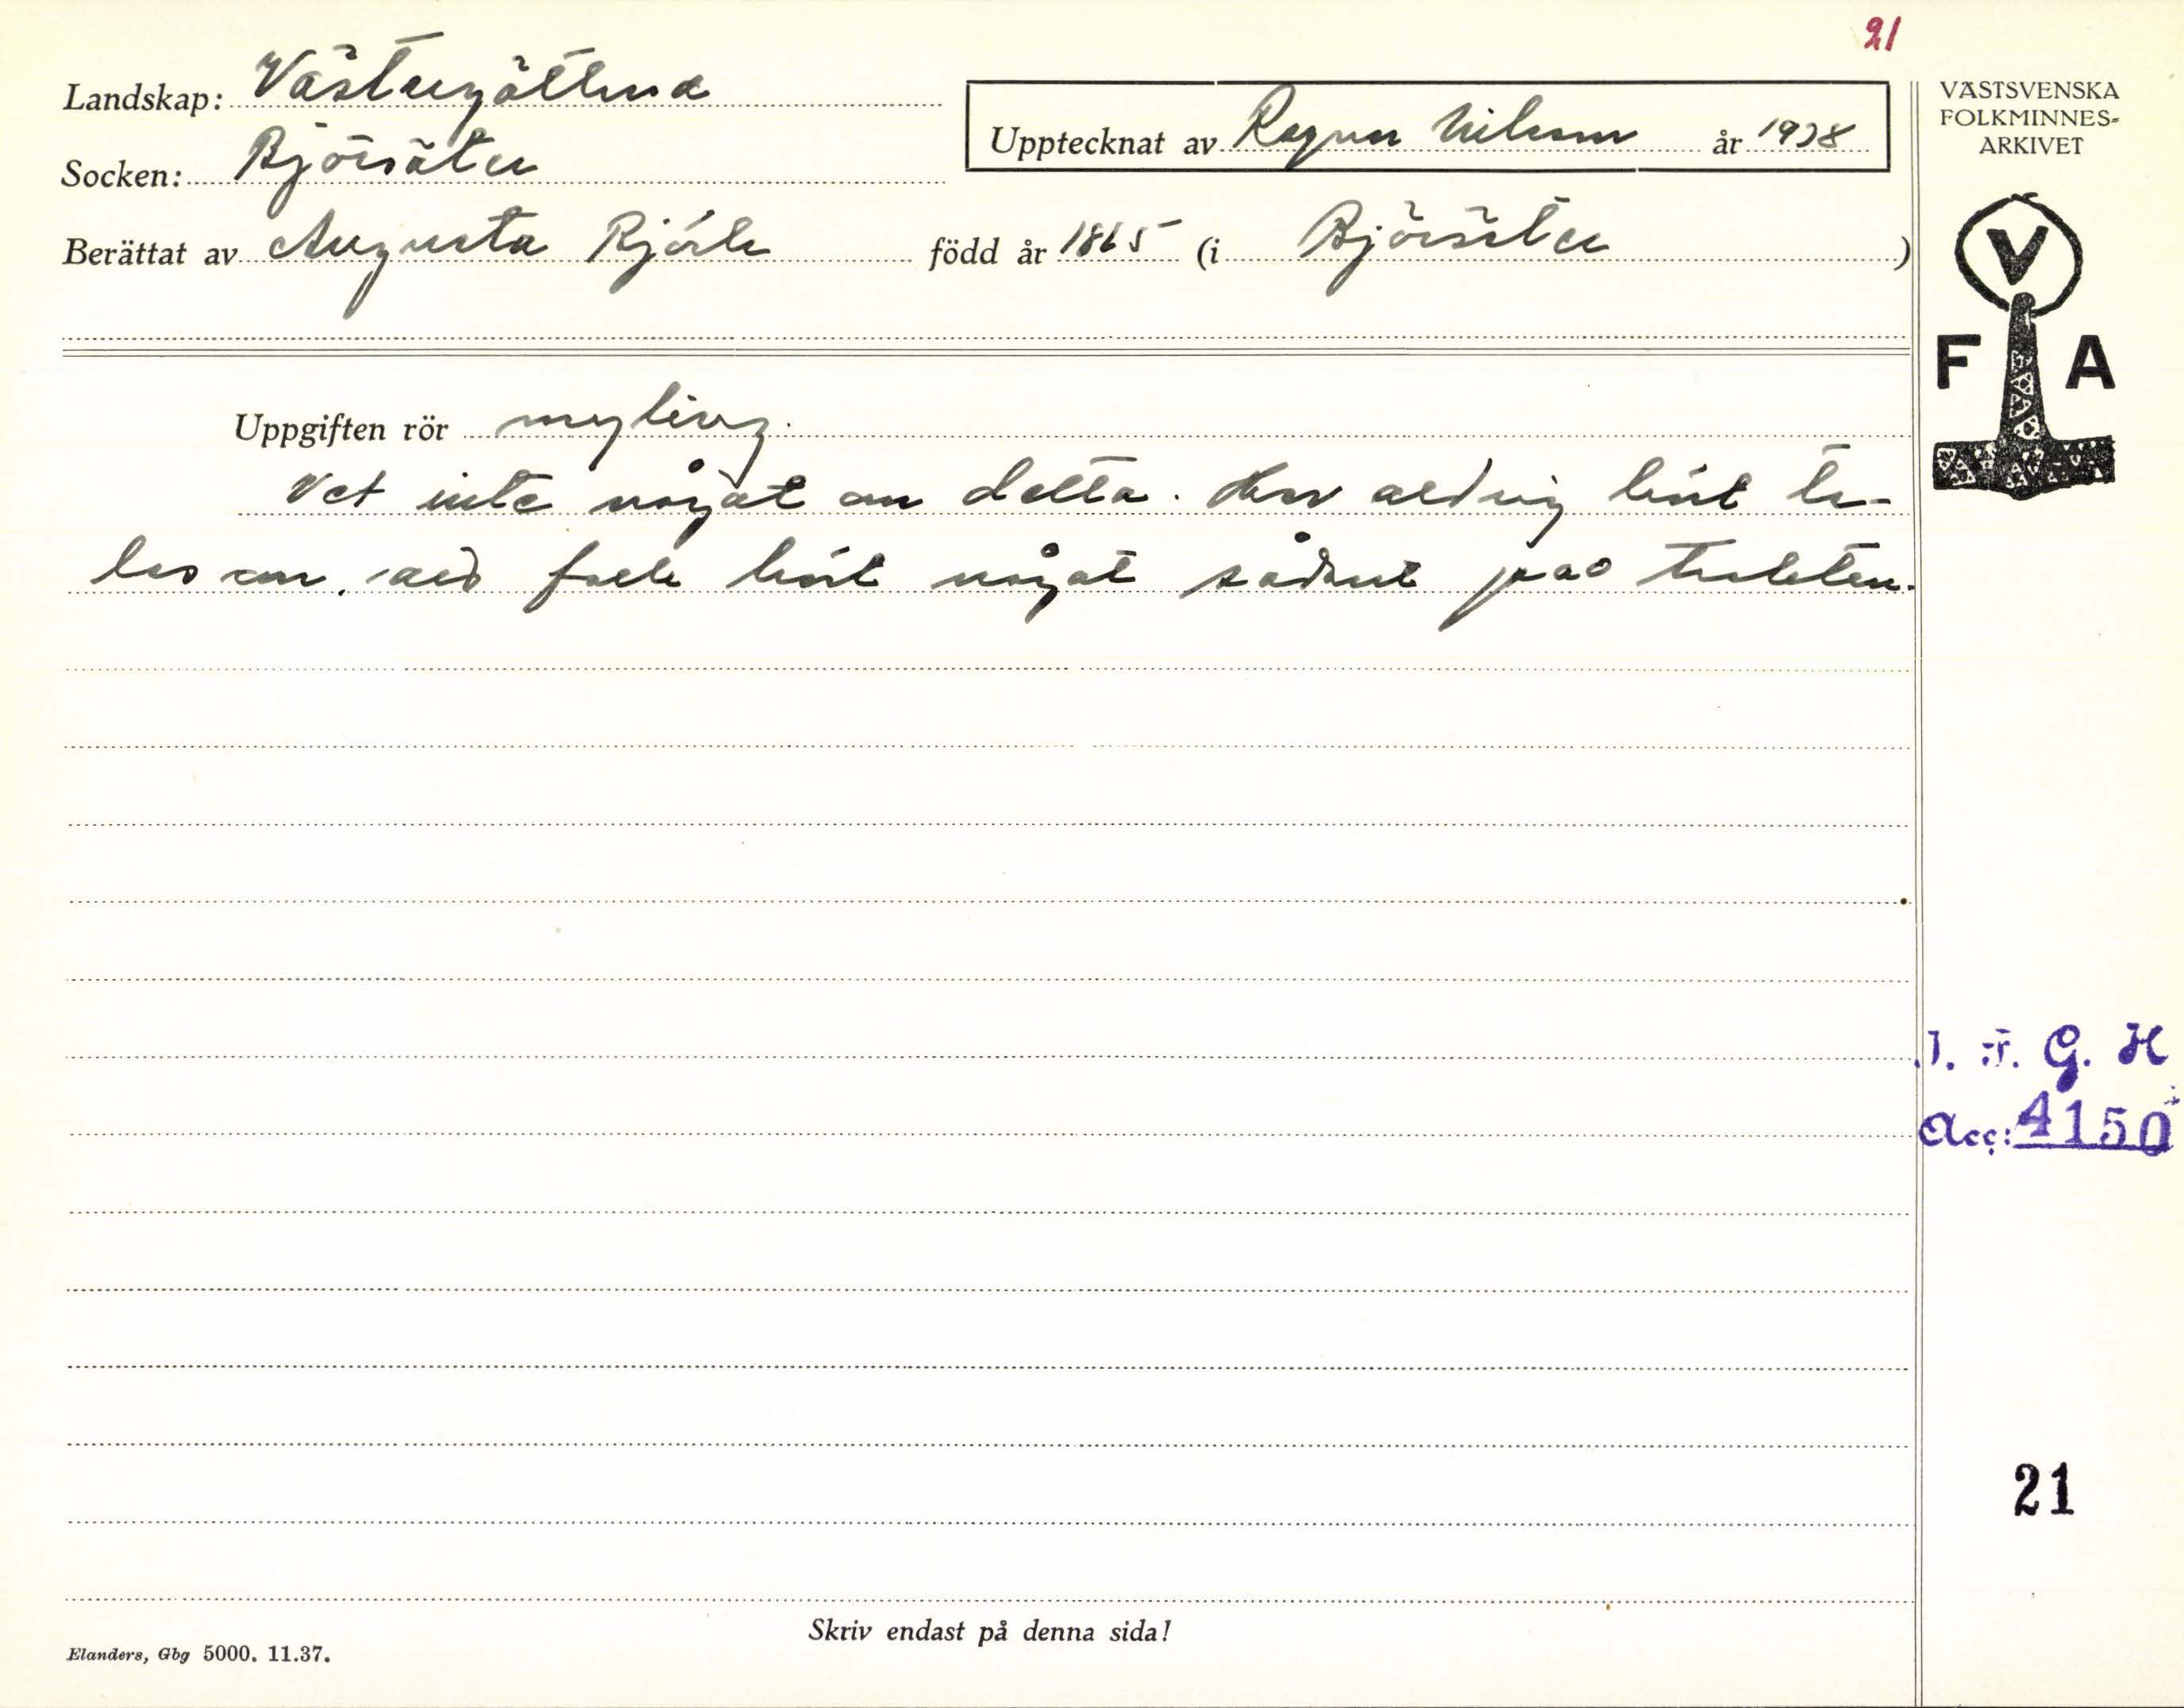 21
Landskap: Västergötland
Upptecknat av Ragnar Nilsson år 1938
VÄSTSVENSKA
FOLKMINNES-
ARKIVET
Socken: Björsäter
Berättat av Augusta född år 1865 (i Björsäter)
V
F A
Uppgiften rör myling.
Vet inte något om detta. Har aldrig hört ta-
las om. hört något sådant på
I. F. G. H
Acc: 4150
21
Skriv endast på denna sida!
Elanders, Gbg 5000. 11.37.